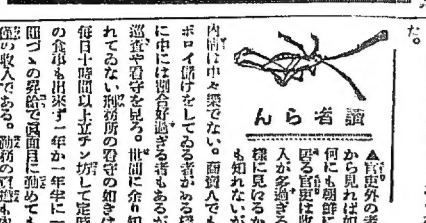 た。
讀者らん
▲官吏外の者
から見れば如
何にも朝鮮に
居る官吏は收
入が多過ぎる
様に見ゆるか
も知れないが
内情は中々樂でない。商賣人でも
ボロイ儲けをしてゐる者がある樣
に中には割合好過ぎる者もあるが
巡査や看守を見ろ。世間に余り知
れてゐない刑務所の看守の如きは
毎日十時間以上立チン坊して
の食事も出來ず一年か一年半に一
圓づゝの昇給で眞面目に勤めても
の收入である。勤務の